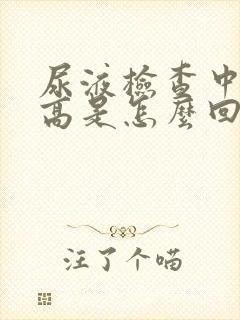 尿液檢查中
高是怎麼回
注了个喵